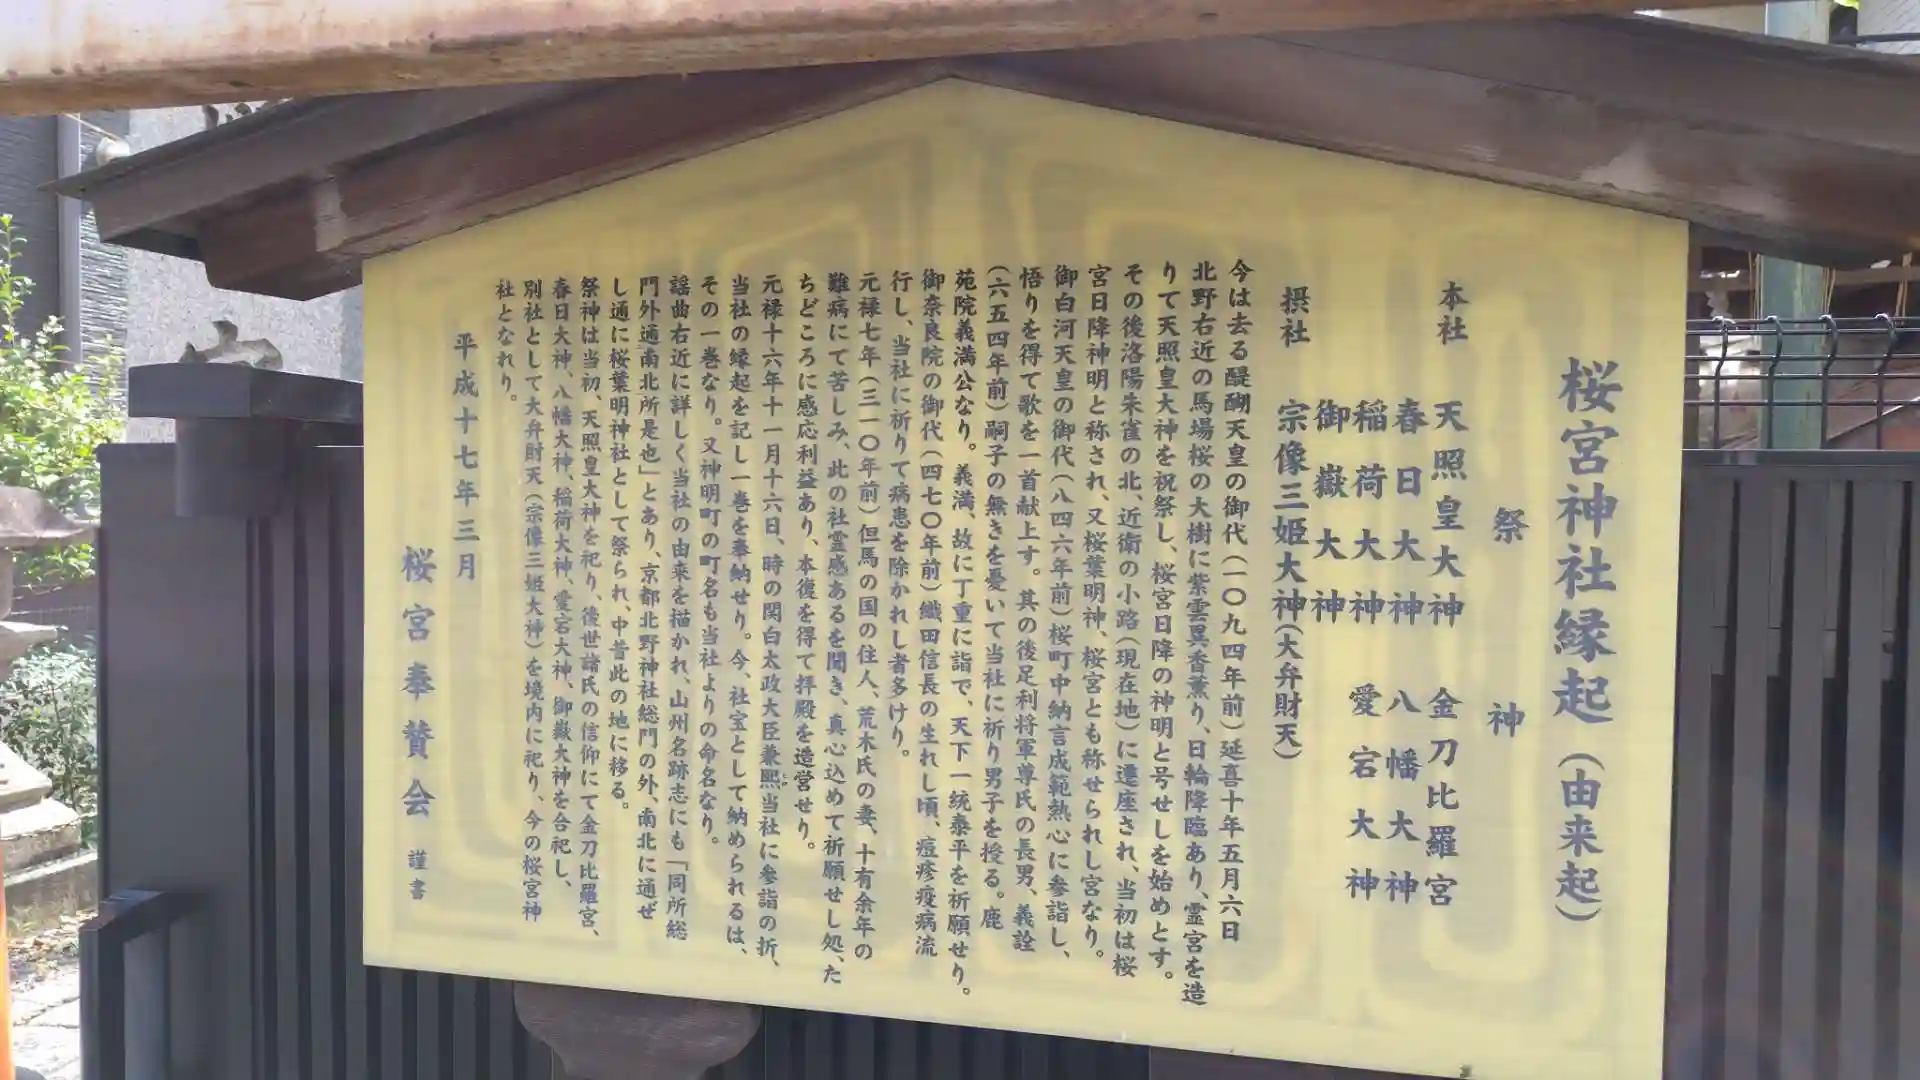 桜宮神社縁起（由来起）
祭神
本社 天照皇大神 金刀比羅宮
春日大神 八幡大神
稲荷大神 愛宕大神
御嶽大神
摂社 宗像三姫大神（大弁財天）
今は去る醍醐天皇の御代（一〇九四年前）延喜十年五月六日
北野右近の馬場桜の大樹に紫雲異香薫り、日輪降臨あり、霊宮を造
りて天照皇大神を祝祭し、桜宮日降の神明と号せしを始めとす。
その後洛陽朱雀の北、近衛の小路（現在地）に遷座され、当初は桜
宮日降神明と称され、又桜葉明神、桜宮とも称せられし宮なり。
御白河天皇の御代（八四六年前）桜町中納言成範熱心に参詣し、
悟りを得て歌を一首献上す。其の後足利将軍尊氏の長男、義詮
（六五四年前）嗣子の無きを憂いて当社に祈り男子を授る。鹿
苑院義満公なり。義満、故に丁重に詣で、天下一統泰平を祈願せり。
御奈良院の御代（四七〇年前）織田信長の生れし頃、痘疹疫病流
行し、当社に祈りて病患を除かれし者多けり。
元禄七年（三一〇年前）但馬の国の住人、荒木氏の妻、十有余年の
難病にて苦しみ、此の社霊感あるを聞き、真心込めて祈願せし処、た
ちどころに感応利益あり、本復を得て拝殿を造営せり。
元禄十六年十一月十六日、時の関白太政大臣兼熙当社に参詣の折、
当社の縁起を記し一巻を奉納せり。今、社宝として納められるは、
その一巻なり。又神明町の町名も当社よりの命名なり。
謡曲右近に詳しく当社の由来を描かれ、山州名跡志にも「同所総
門外通南北所是也」とあり、京都北野神社総門の外、南北に通ぜ
し通に桜葉明神社として祭られ、中昔此の地に移る。
祭神は当初、天照皇大神を祀り、後世諸氏の信仰にて金刀比羅宮、
春日大神、八幡大神、稲荷大神、愛宕大神、御嶽大神を合祀し、
別社として大弁財天（宗像三姫大神）を境内に祀り、今の桜宮神
社となれり。
平成十七年三月
桜宮奉賛会 謹書